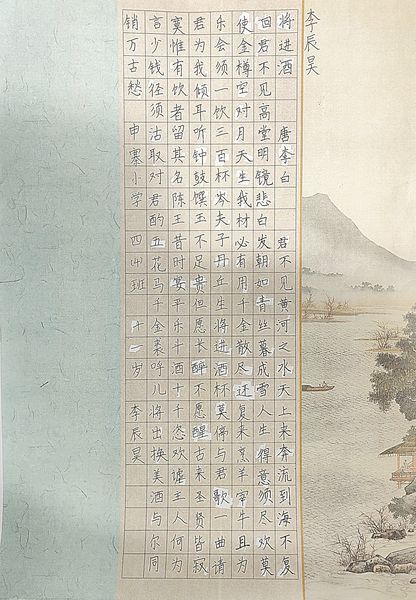 李辰昊
将进酒 唐李白 君不见黄河之水天上来奔流到海不复
回君不见高堂明镜悲白发朝如青丝暮成雪人生得意须尽欢莫
使金樽空对月天生我材必有用千金散尽还复来烹羊宰牛且为
乐会须一饮三百杯岑夫子丹丘生将进酒杯莫停与君歌一曲请
君为我倾耳听钟鼓馔玉不足贵但愿长醉不愿醒古来圣贤皆寂
寞惟有饮者留其名陈王昔时宴平乐斗酒十千恣欢谑主人何为
言少钱径须沽取对君酌五花马千金裘呼儿将出换美酒与尔同
销万古愁 申寨小学 四(4)班 十一岁 李辰昊